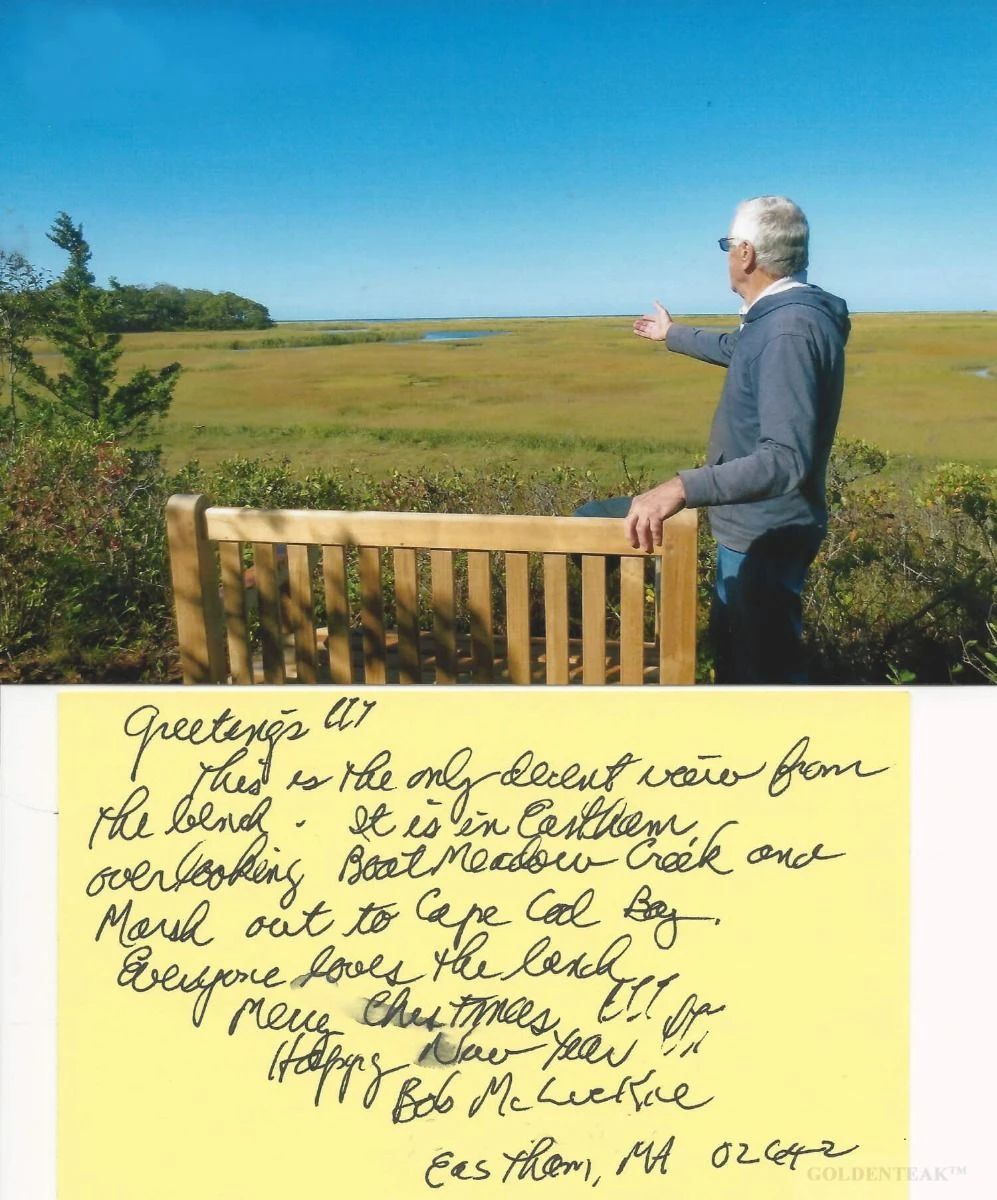 Greetings !!!
This is the only decent view from
the bench. It is in Eastham
overlooking Boat Meadow Creek and
Marsh out to Cape Cod Bay.
Everyone loves the bench
Merry Christmas !!!
Happy New Year !!!
Bob McLuckie
Eastham, MA 02642
GOLDENTEAK™